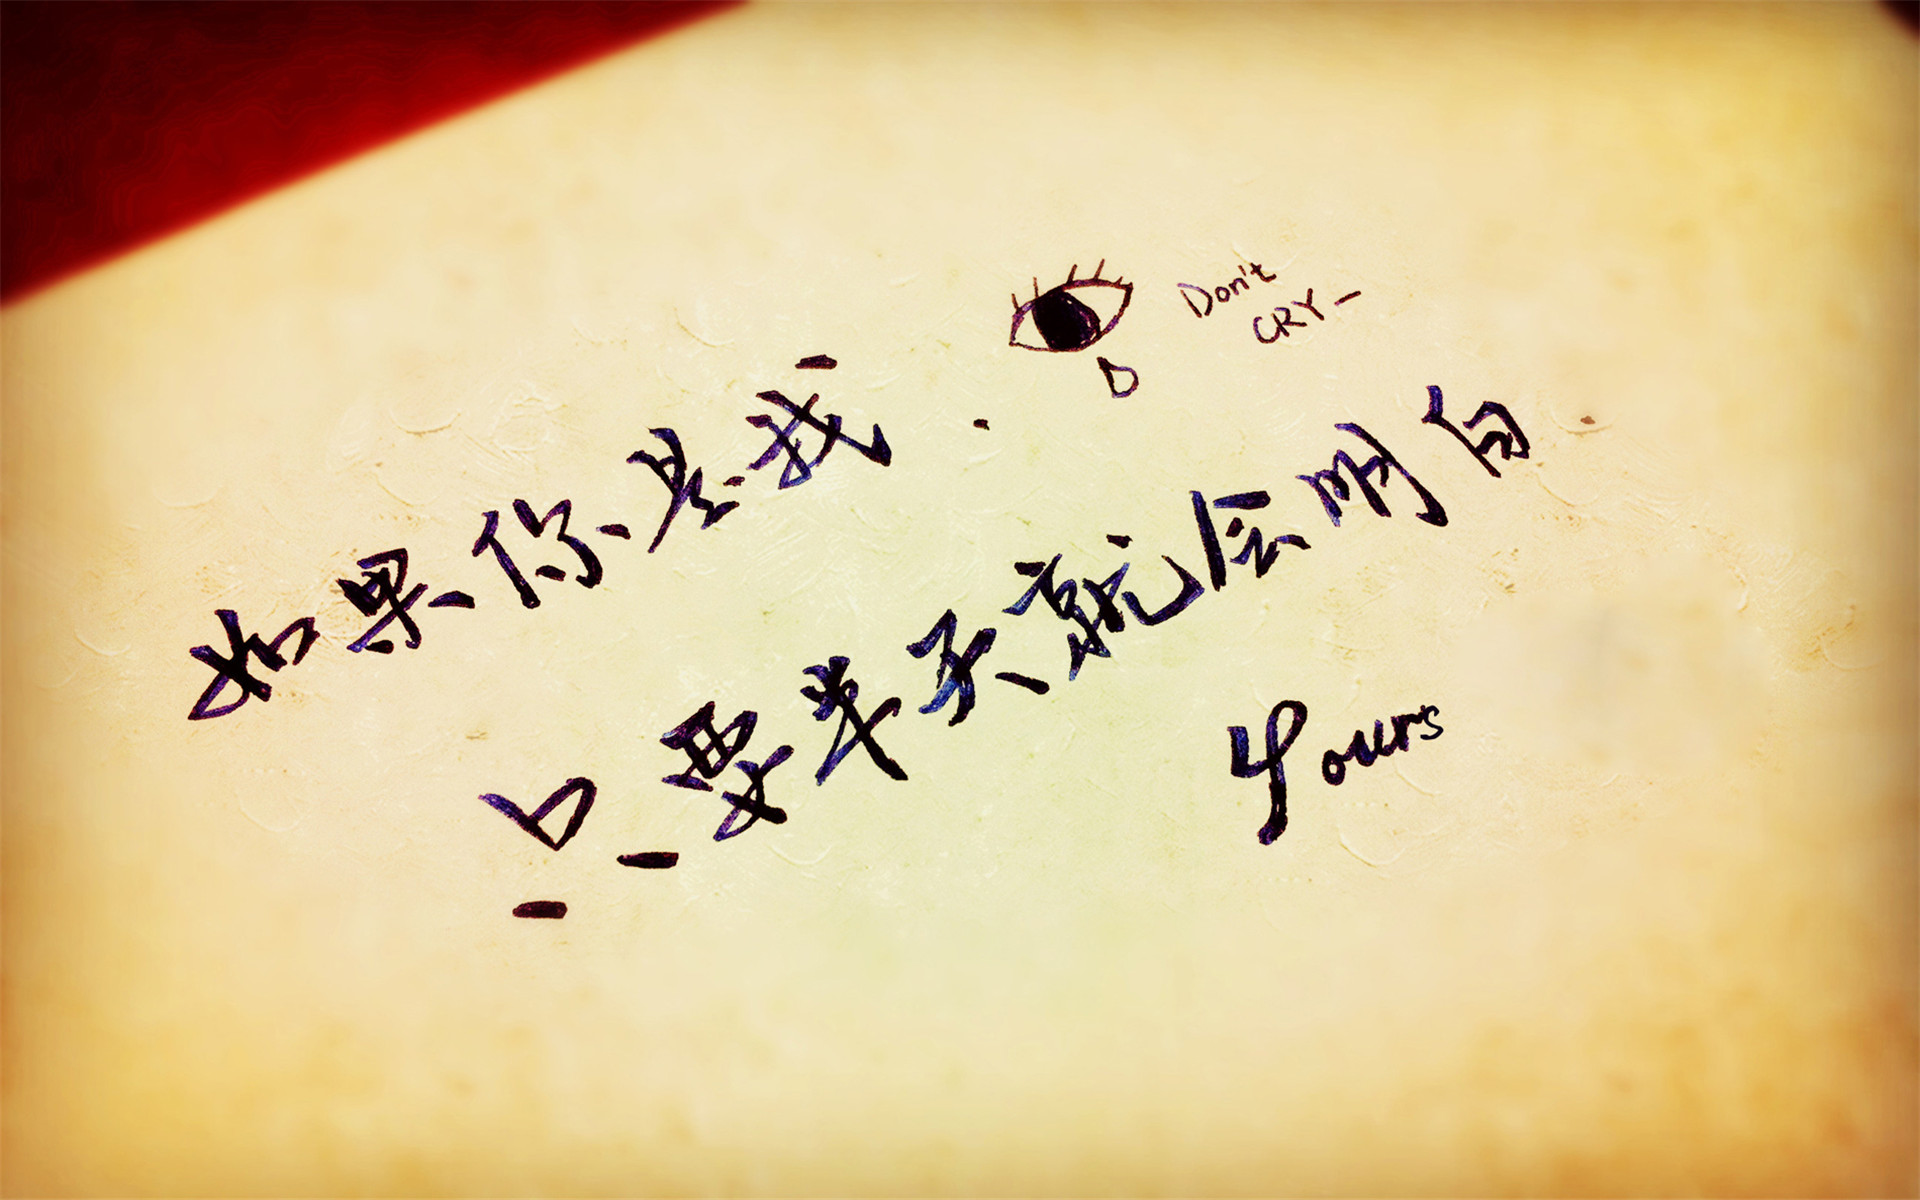 Don't
CRY-
如果你是我.
只要半天就会明白.
Yours